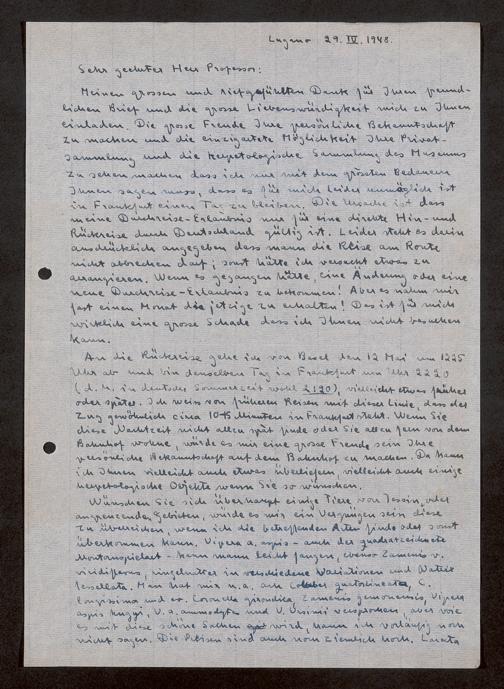 Lugano 29. IV. 1948.
Sehr geehrter Herr Professor:
Meinen grossen und tiefgefühlten Dank für Ihren freund-
lichen Brief und die grosse Liebenswürdigkeit mich zu Ihnen
einladen. Die grosse Freude Ihre persönliche Bekanntschaft
zu machen und die einzigartige Möglichkeit Ihre Privat-
sammlung und die herpetologische Sammlung des Museums
zu sehen machen dass ich nur mit dem grössten Bedauern
Ihnen sagen muss, dass es für mich leider unmöglich ist
in Frankfurt einen Tag zu bleiben. Die Ursache ist dass
meine Durchreise-Erlaubnis nur für eine direkte Hin- und
Rückreise durch Deutschland gültig ist. Leider steht es darin
ausdrücklich angegeben dass mann die Reise am Route
nicht abbrechen darf; sonst hätte ich versucht etwas zu
arrangieren. Wenn es gegangen hätte, eine Änderung oder eine
neue Durchreise-Erlaubnis zu bekommen! Aber es nahm mir
fast einen Monat die jetzige zu erhalten! Das ist für mich
wirklich eine grosse Schade dass ich Ihnen nicht besuchen
kann.
An die Rückreise gehe ich von Basel den 12 Mai um 1225
Uhr ab und bin denselben Tag in Frankfurt um Uhr 2220
(d. h. in deutscher Sommerzeit wohl 2120), vielleicht etwas früher
oder später. Ich weis von früheren Reisen mit dieser Linie, dass der
Zug gewöhnlich circa 10-15 Minuten in Frankfurt steht. Wenn Sie
diese Nachtzeit nicht allzu spät finde oder Sie allzu fern von dem
Bahnhof wohne, würde es mir eine grosse Freude sein Ihre
persönliche Bekanntschaft auf dem Bahnhof zu machen. Da kann
ich Ihnen vielleicht auch etwas überliefern, vielleicht auch einige
herpetologische Objekte wenn Sie so wünschen.
Wünschen Sie sich überhaupt einige Tiere von Tessin, oder
angrenzenden Gebieten, würde es mir ein Vergnügen sein diese
zu überreichen, wenn ich die betreffenden Arten finde oder sonst
überkommen kann. Vipera a. aspis - auch der quadratzeichnete
Montanspielart - kann mann leicht fangen, ebenso Zamenis v.
viridiflavus, eingelnatter in verschiedene Variationen und Natrix
tessellata. Man hat mir u.a. auch Coluber quatorlineatus, C.
longissima und ev. Coronella girondica, Zamenis gemonensis, Vipera
aspis hugyi, V. a. ammodytes und V. Ursinii versprochen, aber wie
es mit diese schöne Sachen wird, kann ich vorläufig noch
nicht sagen. Die Preisen sind auch noch ziemlich hoch. Lacerta